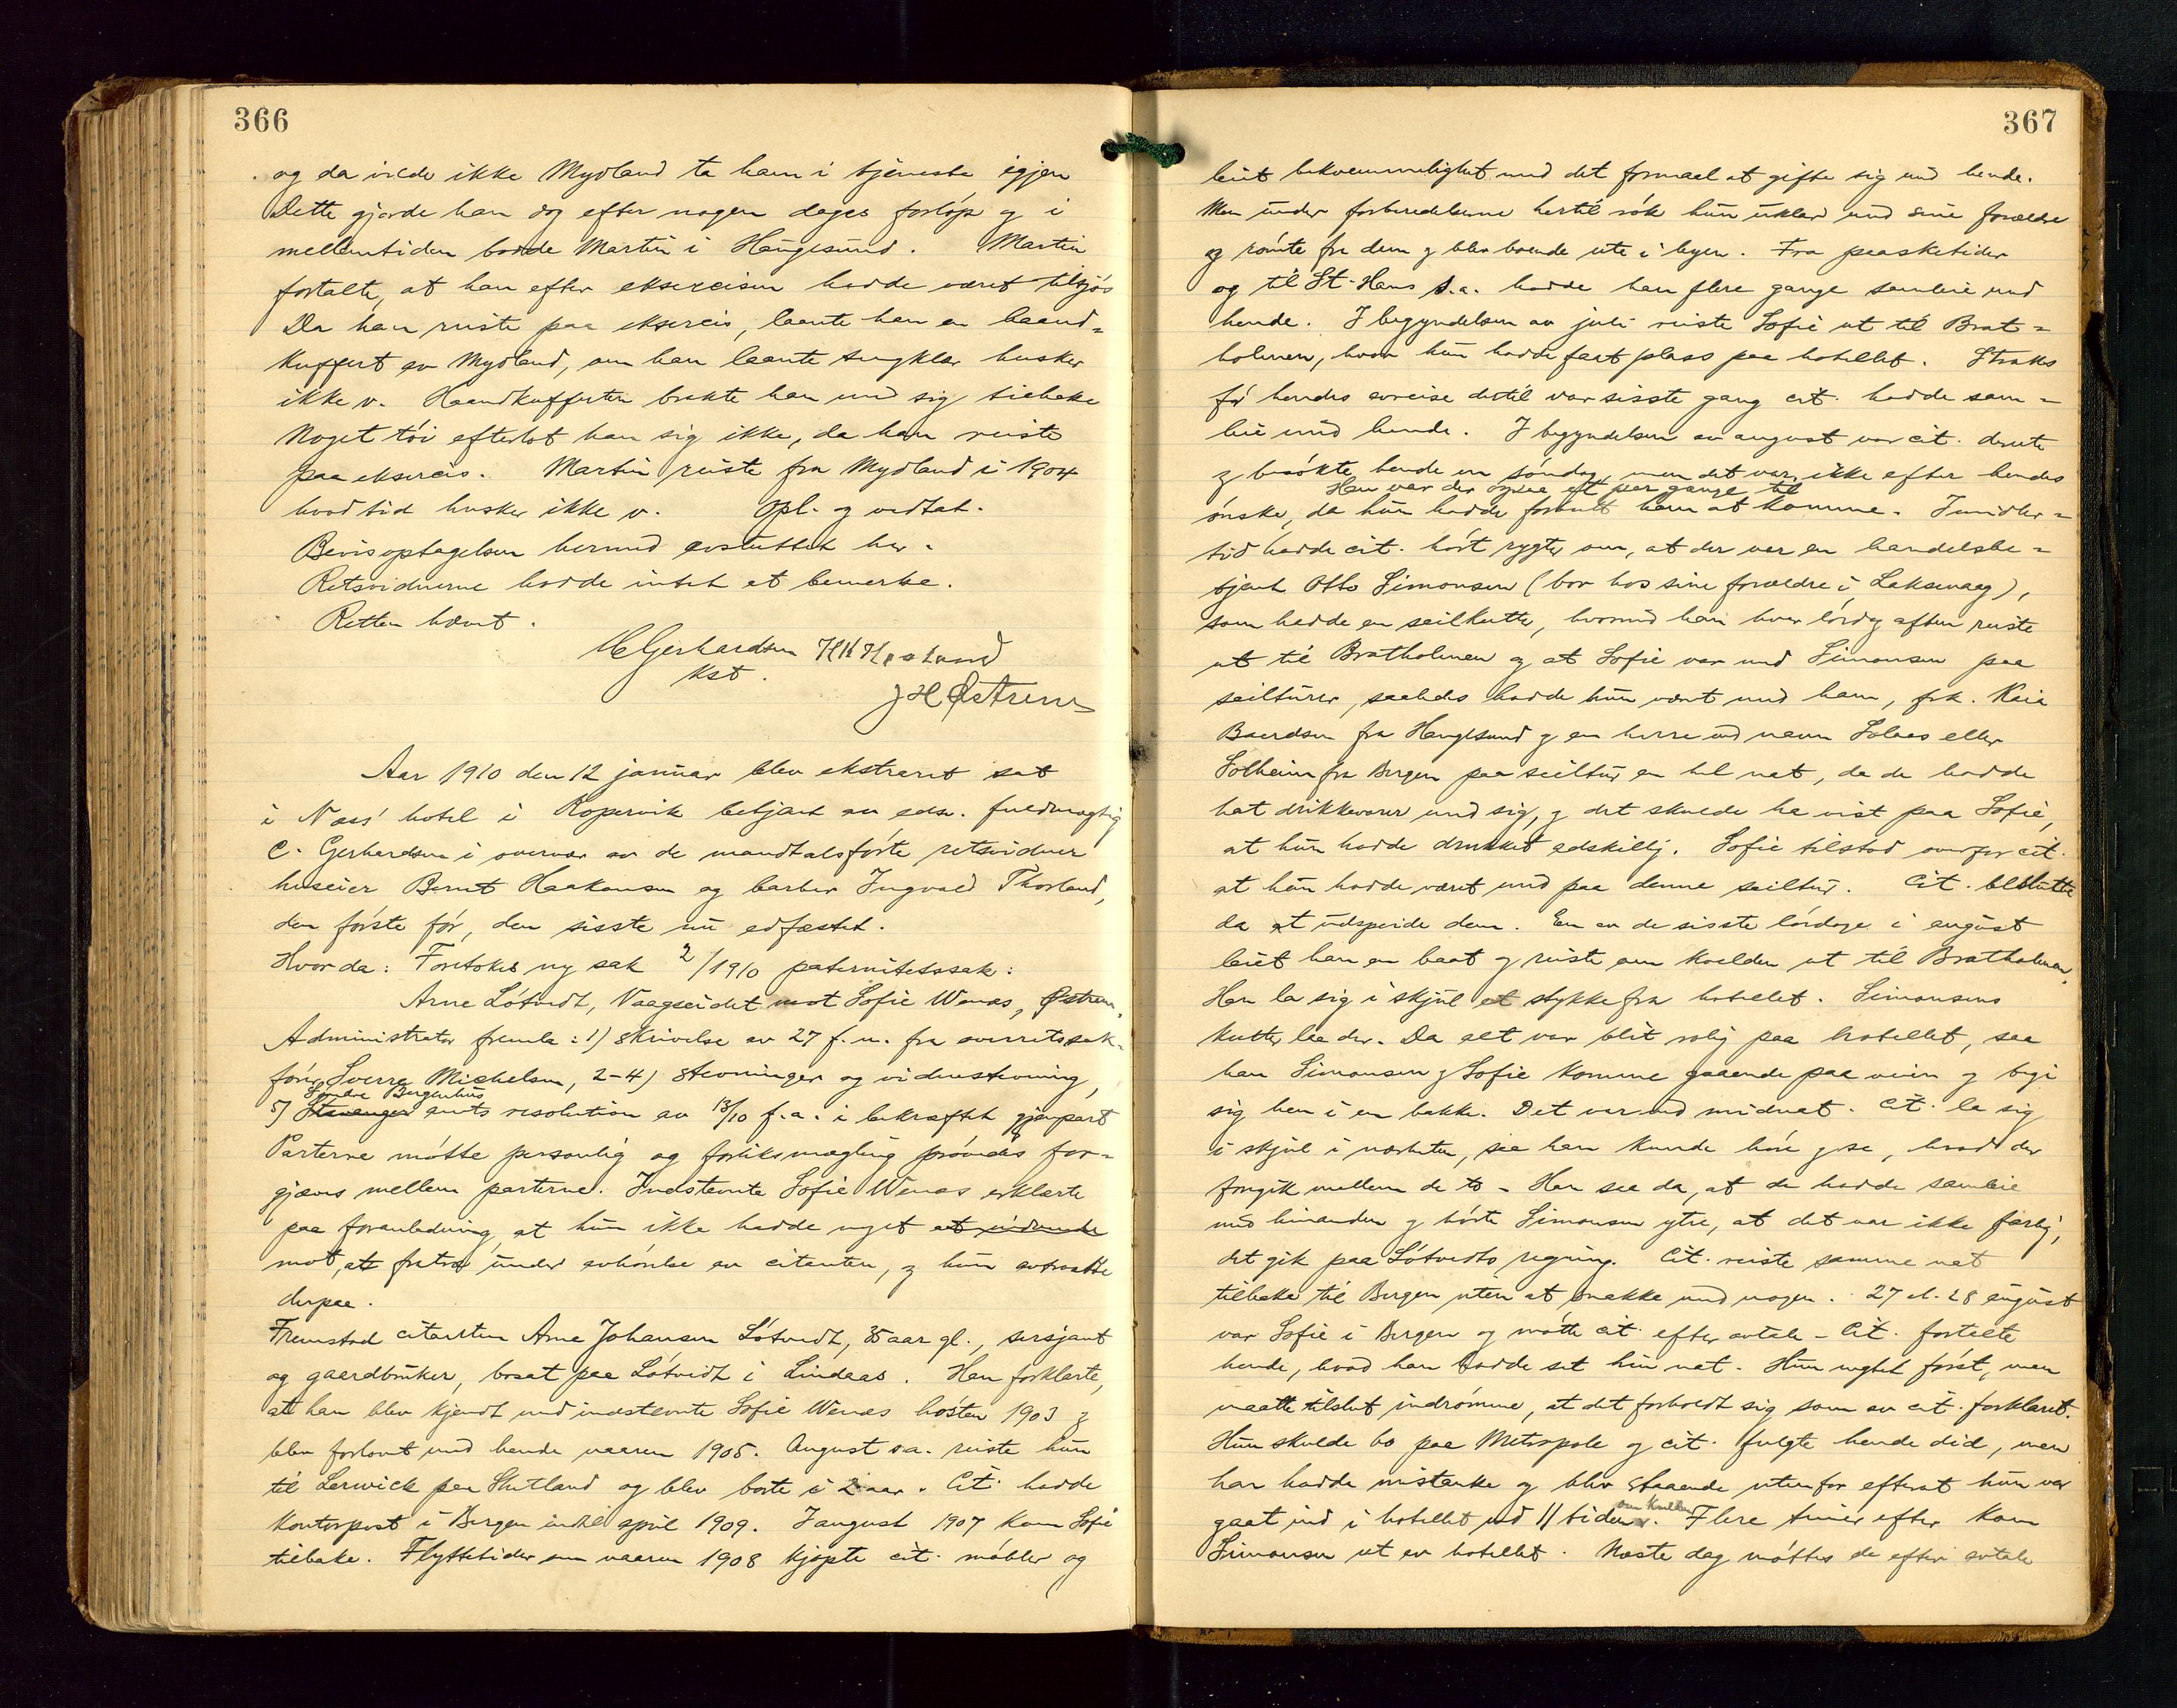 366
og da vilde ikke Mydland ta ham i tjeneste igjen
Dette gjorde han dog efter nogen dages forløp og i
mellemtiden bodde Martin i Haugesund. Martin
fortalte, at han efter eksercisen hadde været tilsjøs
Da han reiste paa eksercis, laante han en haand-
kuffert av Mydland, om han laante sengklær husker
ikke v. Haandkufferten brakte han med sig tilbake
Noget tøi efterlot han sig ikke, da han reiste
paa eksercis. Martin reiste fra Mydland i 1904
hvad tid husker ikke v. Opl. og vedtat.
Bevisoptagelsen hermed avsluttet her.
Retsvidnerne hadde intet at bemerke.
Retten hævet.
CGerhardsen HH
kst.
JHØstrem
Aar 1910 den 12 januar blev ekstraret sat
i Næss' hotel i Kopervik betjent av edsv. fuldmægtig
C. Gerhardsen i overvær av de mandtalsførte retsvidner
huseier Bernt Haakonsen og barber Ingvald Thorland,
den første før, den sisste nu edfæstet.
Hvor da: Foretokes ny sak 2/1910 paternitetssak:
Arne Løtvedt, Vaagseidet mot Sofie Wenæs, Østrem.
Administrator fremla: 1) skrivelse av 27 f.m. fra overretssak-
fører Sverre Michelsen, 2-4) stevninger og vidnestevning,
Søndre Bergenhus
5) Stavanger amts resolution av 13/10 f.a. i bekræftet gjenpart
Parterne møtte personlig og forliksmægling prøvedes for-
gjæves mellem parterne. Indstevnte Sofie Wenæs erklærte
paa foranledning at hun ikke hadde noget at indvende
mot, at fratræ under avhørelse av citanten, og hun avtraadte
derpaa.
Fremstod citanten Arne Johansen Løtvedt, 35 aar gl., sersjant
og gaardbruker, bosat paa Løtvedt i Lindaas. Han forklarte,
at han blev kjendt med indstevnte Sofie Wenæs høsten 1903 og
blev forlovet med hende vaaren 1905. August s.a. reiste hun
til Lerwick paa Shetland og blev borte i 2 aar. Cit. hadde
kontorpost i Bergen indtil april 1909. I august 1907 kom Sofie
tilbake. Flyttetiden om vaaren 1908 kjøpte cit. møbler og
367
leiet bekvemmelighet med det formaal at gifte sig med hende.
Men under forberedelserne hertil røk hun uklar med sine forældre
og rømte fra dem og blev boende ute i byen. Fra paasketider
og til St-Hans s.a. hadde han flere gange samleie med
hende. I begyndelsen av juli reiste Sofie ut til Brat-
holmen, hvor hun hadde faat plass paa hotellet. Straks
før hendes avreise dertil var sisste gang cit. hadde sam-
leie med hende. I begyndelsen av august var cit. derute
og besøkte hende en søndag, men det var ikke efter hendes
Han var der ogsaa et par gange til
ønske, da hun hadde forbudt ham at komme. Imidler-
tid hadde cit. hørt rygter om, at der var en handelsbe-
tjent Otto Simonsen (bor hos sine forældre i Laksevaag),
som hadde en seilkutter, hvormed han hver lørdag aften reiste
ut til Bratholmen og at Sofie var med Simonsen paa
seilturer, saaledes hadde hun været med ham, frk. Kaia
Baardsen fra Haugesund og en herre ved navn Solaas eller
Solheim fra Bergen paa seiltur en hel nat, da de hadde
hat drikkevarer med sig, og det skulde ha vist paa Sofie,
at hun hadde drukket adskillig. Sofie tilstod overfor cit.
at hun hadde været med paa denne seiltur. Cit. besluttet
da at utspeide dem. En av de sisste lørdage i august
leiet han en baat og reiste om kvelden ut til Bratholmen.
Han la sig i skjul et stykke fra hotellet. Simonsens
kutter laa der. Da alt var blit rolig paa hotellet, saa
han Simonsen og Sofie komme gaaende paa veien og begi
sig hen i en bakke. Det var ved midnat. Cit. la sig
i skjul i nærheten, saa han kunde høre og se, hvad der
foregik mellem de to. Han saa da, at de hadde samleie
med hinanden og hørte Simonsen ytre, at det var ikke farlig,
det gik paa Løtvedts regning. Cit. reiste samme nat
tilbake til Bergen uten at snakke med nogen. 27 el. 28 august
var Sofie i Bergen og møtte cit. efter avtale. Cit. fortalte
hende, hvad han hadde set hin nat. Hun negtet først, men
maatte tilslut indrømme, at det forholdt sig som av cit. forklaret.
Hun skulde bo paa Metropole og cit. fulgte hende did, men
han hadde mistanke og blev staaende utenfor efterat hun var
om kvelden
gaat ind i hotellet ved 11 tiden. Flere timer efter kom
Simonsen ut av hotellet. Næste dag møttes de efter avtale